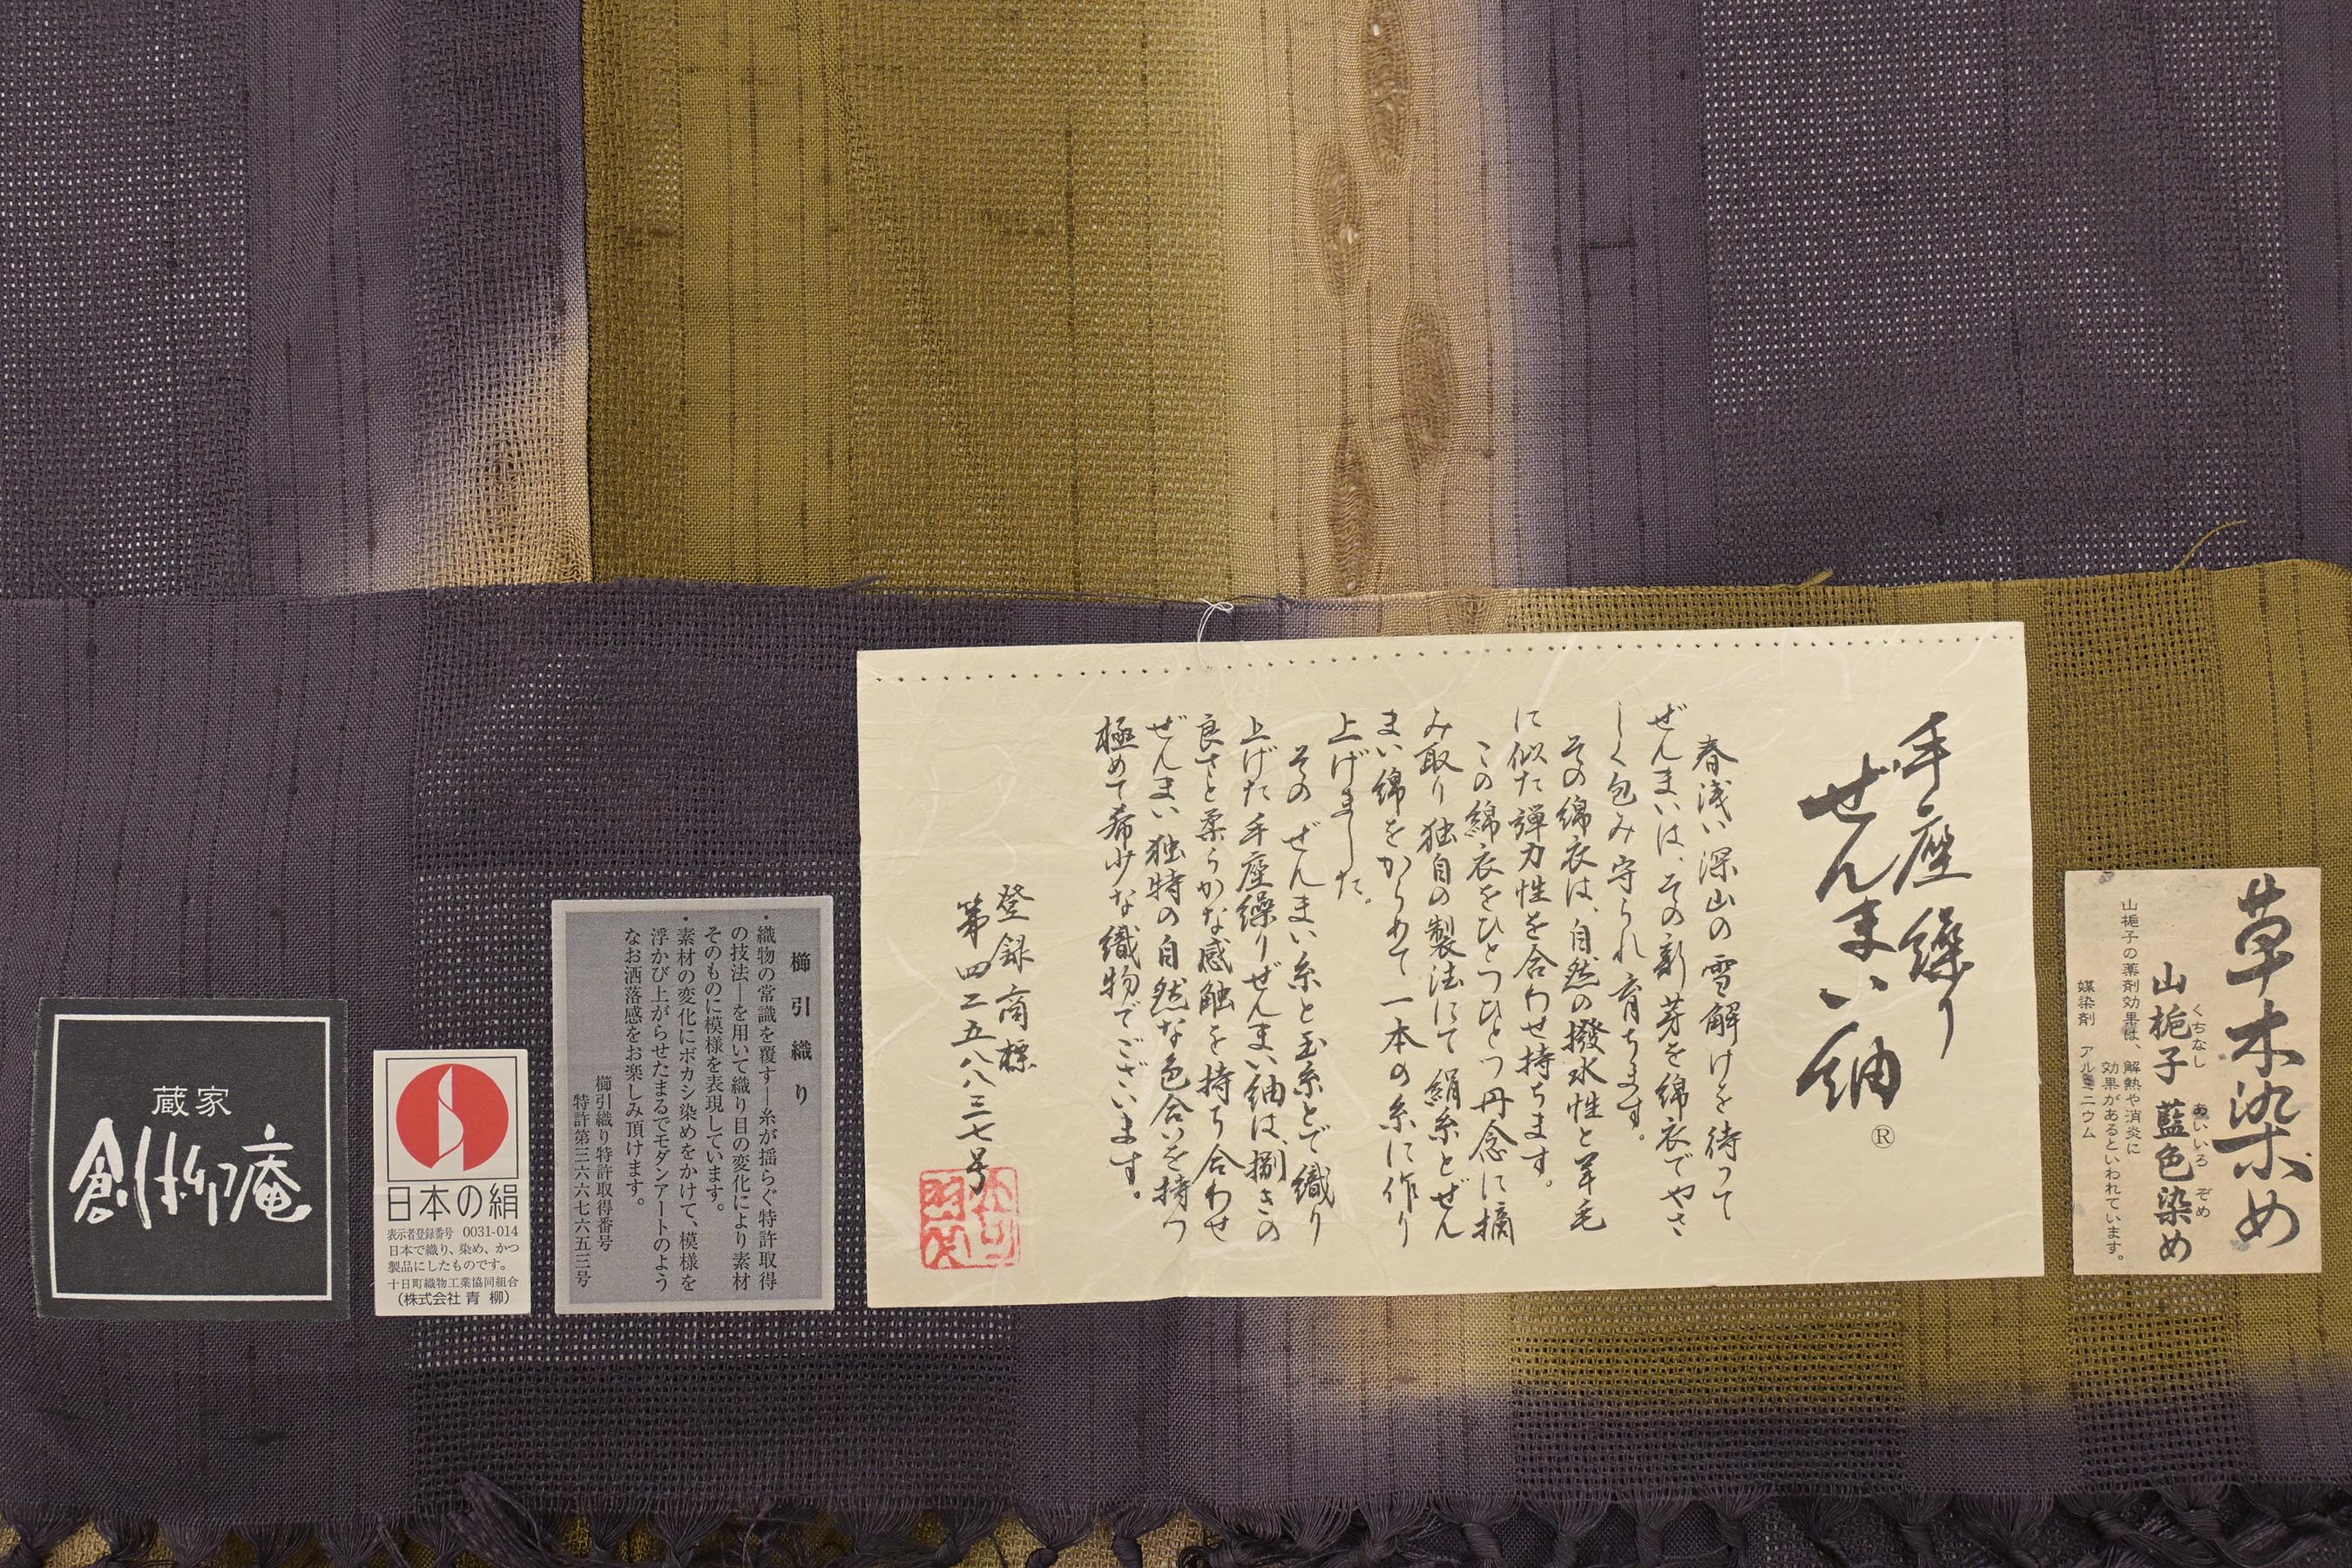 草木染め
山梔子藍色染め
くちなし
あいいろ
ぞめ
山梔子の薬剤効果は、解熱や消炎に
効果があるといわれています。
媒染剤 アルミニウム
手座繰り
ぜんまい紬
®
春浅い深山の雪解けを待って
ぜんまいは、その新芽を綿衣でやさ
しく包み守られ育ちます。
その綿衣は、自然の撥水性と羊毛
に似た弾力性を合わせ持ちます。
この綿衣をひとつひとつ丹念に摘
み取り独自の製法にて絹糸とぜん
まい綿をからめて一本の糸に作り
上げました。
その ぜんまい糸と玉糸とで織り
上げた手座繰りぜんまい紬は、捌きの
良さと柔らかな感触を持ち合わせ
ぜんまい独特の自然な色合いを持つ
極めて希少な織物でございます。
登録商標
第四二五八八三七号
櫛引織り
・織物の常識を覆す―糸が揺らぐ特許取得
の技法―を用いて織り目の変化により素材
そのものに模様を表現しています。
・素材の変化にボカシ染めをかけて、模様を
浮かび上がらせたまるでモダンアートのよう
なお洒落感をお楽しみ頂けます。
櫛引織り特許取得番号
特許第三六六七六五三号
日本の絹
表示者登録番号 0031-014
日本で織り、染め、かつ
製品にしたものです。
十日町織物工業協同組合
(株式会社 青 柳)
蔵家
創作柳庵